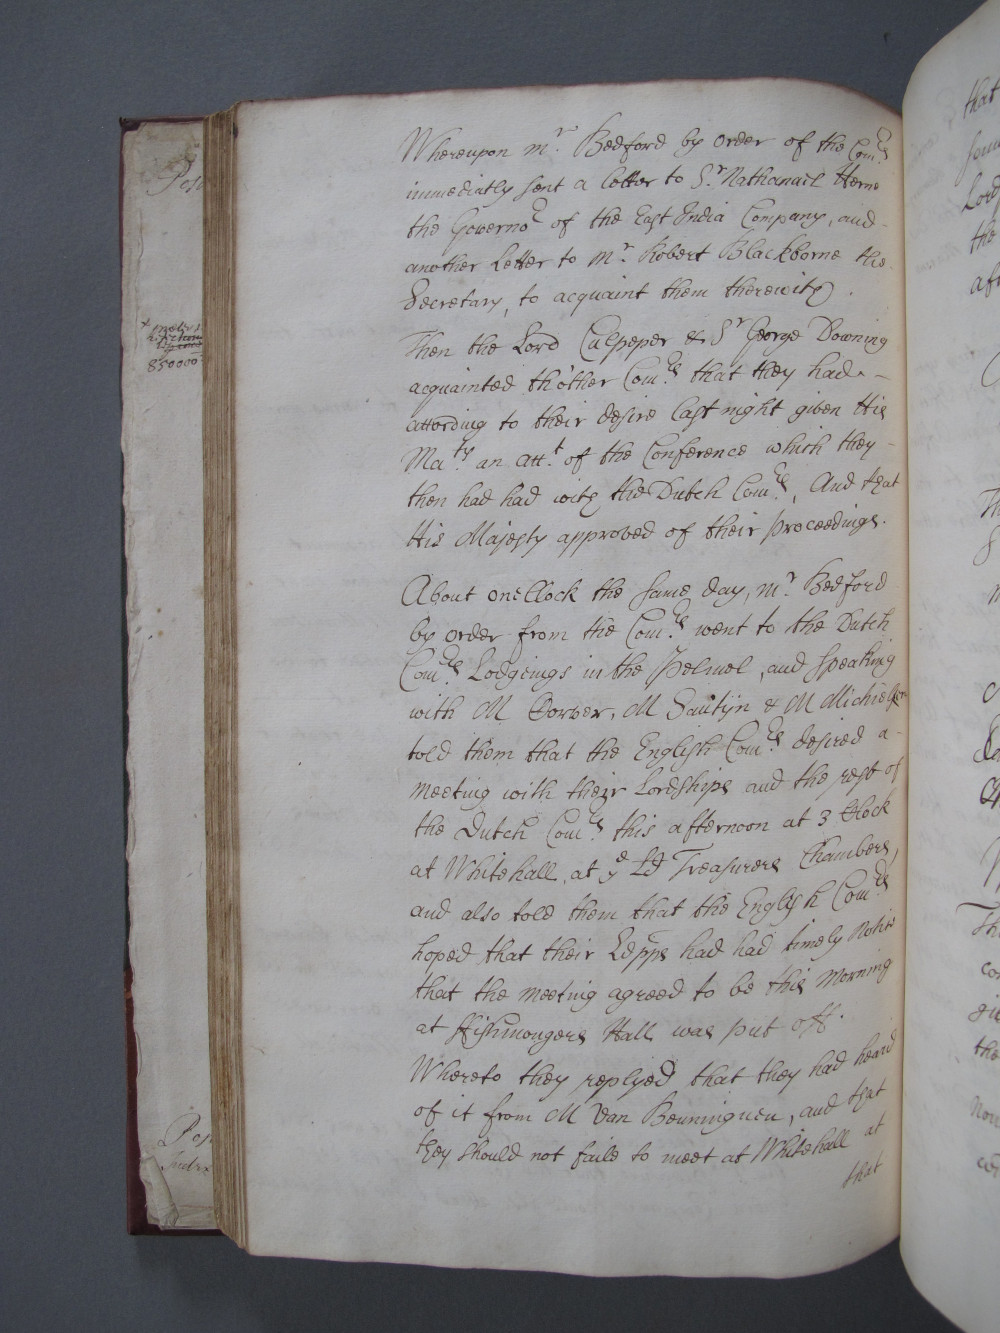 Whereupon mr. Bedford by order of the Comrs
immediatly sent a letter to Sr. Nathanael Herne
the Governor of the East India Company, and
another Letter to mr. Robert Blackborne the
Secretary, to acquaint them therewith.
Then the Lord Culpeper & Sr George Downing
acquainted th'other Comrs that they had
according to their desire last night given His
Maty. an acct. of the Conference which they
then had had with the Dutch Comrs, And that
His Majesty approved of their proceedings.
About one Clock the same day, mr. Bedford
by order from the Comrs went to the Dutch
Comrs Lodgeings in the Pelmel, and speaking
with M Corver, M Sautijn & M Michielzen
told them that the English Comrs desired a
meeting with their Lordships and the rest of
the Dutch Comrs this afternoon at 3 Clock
at Whitehall, at ye Ld Treasurers Chambers,
and also told them that the English Comrs
hoped that their Ldpps had had timely Notis
that the meeting agreed to be this morning
at ffishmongers Hall was put off.
Whereto they replyed that they had heard
of it from M Van Beuninguen, and that
they should not faile to meet at Whitehall at
that
850000
that
Lord
the